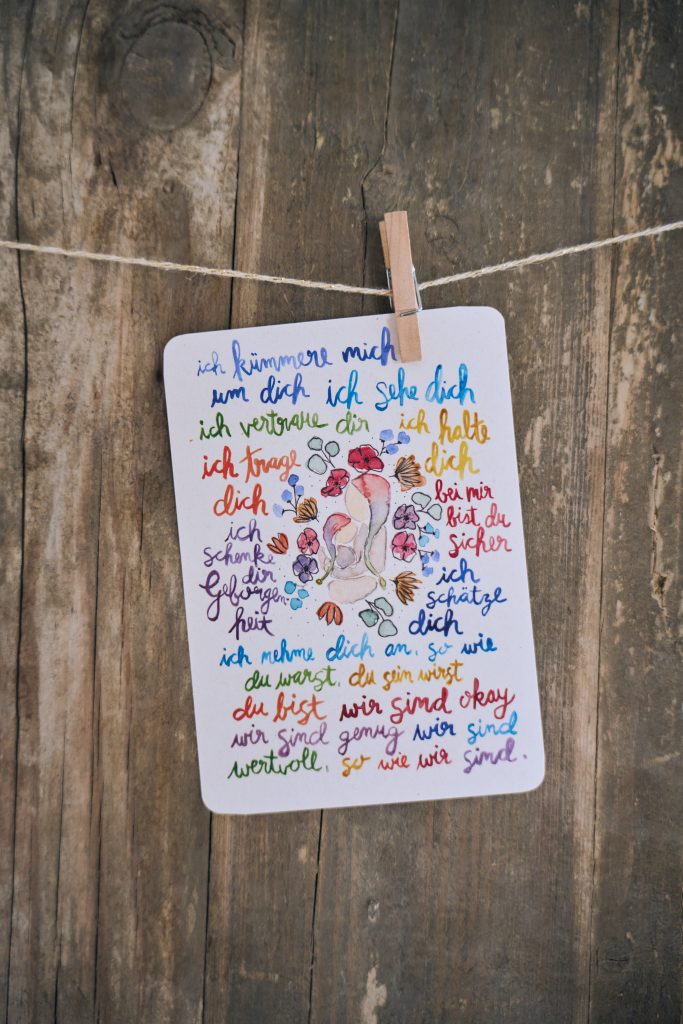 ich kümmere mich
um dich ich sehe dich
ich vertraue dir ich halte
dich
ich trage
dich
bei mir
bist du
sicher
ich
schenke
dir
Geborgen-
heit
ich
schätze
dich
ich nehme dich an, so wie
du warst, du sein wirst
du bist wir sind okay
wir sind genug wir sind
wertvoll, so wie wir sind.